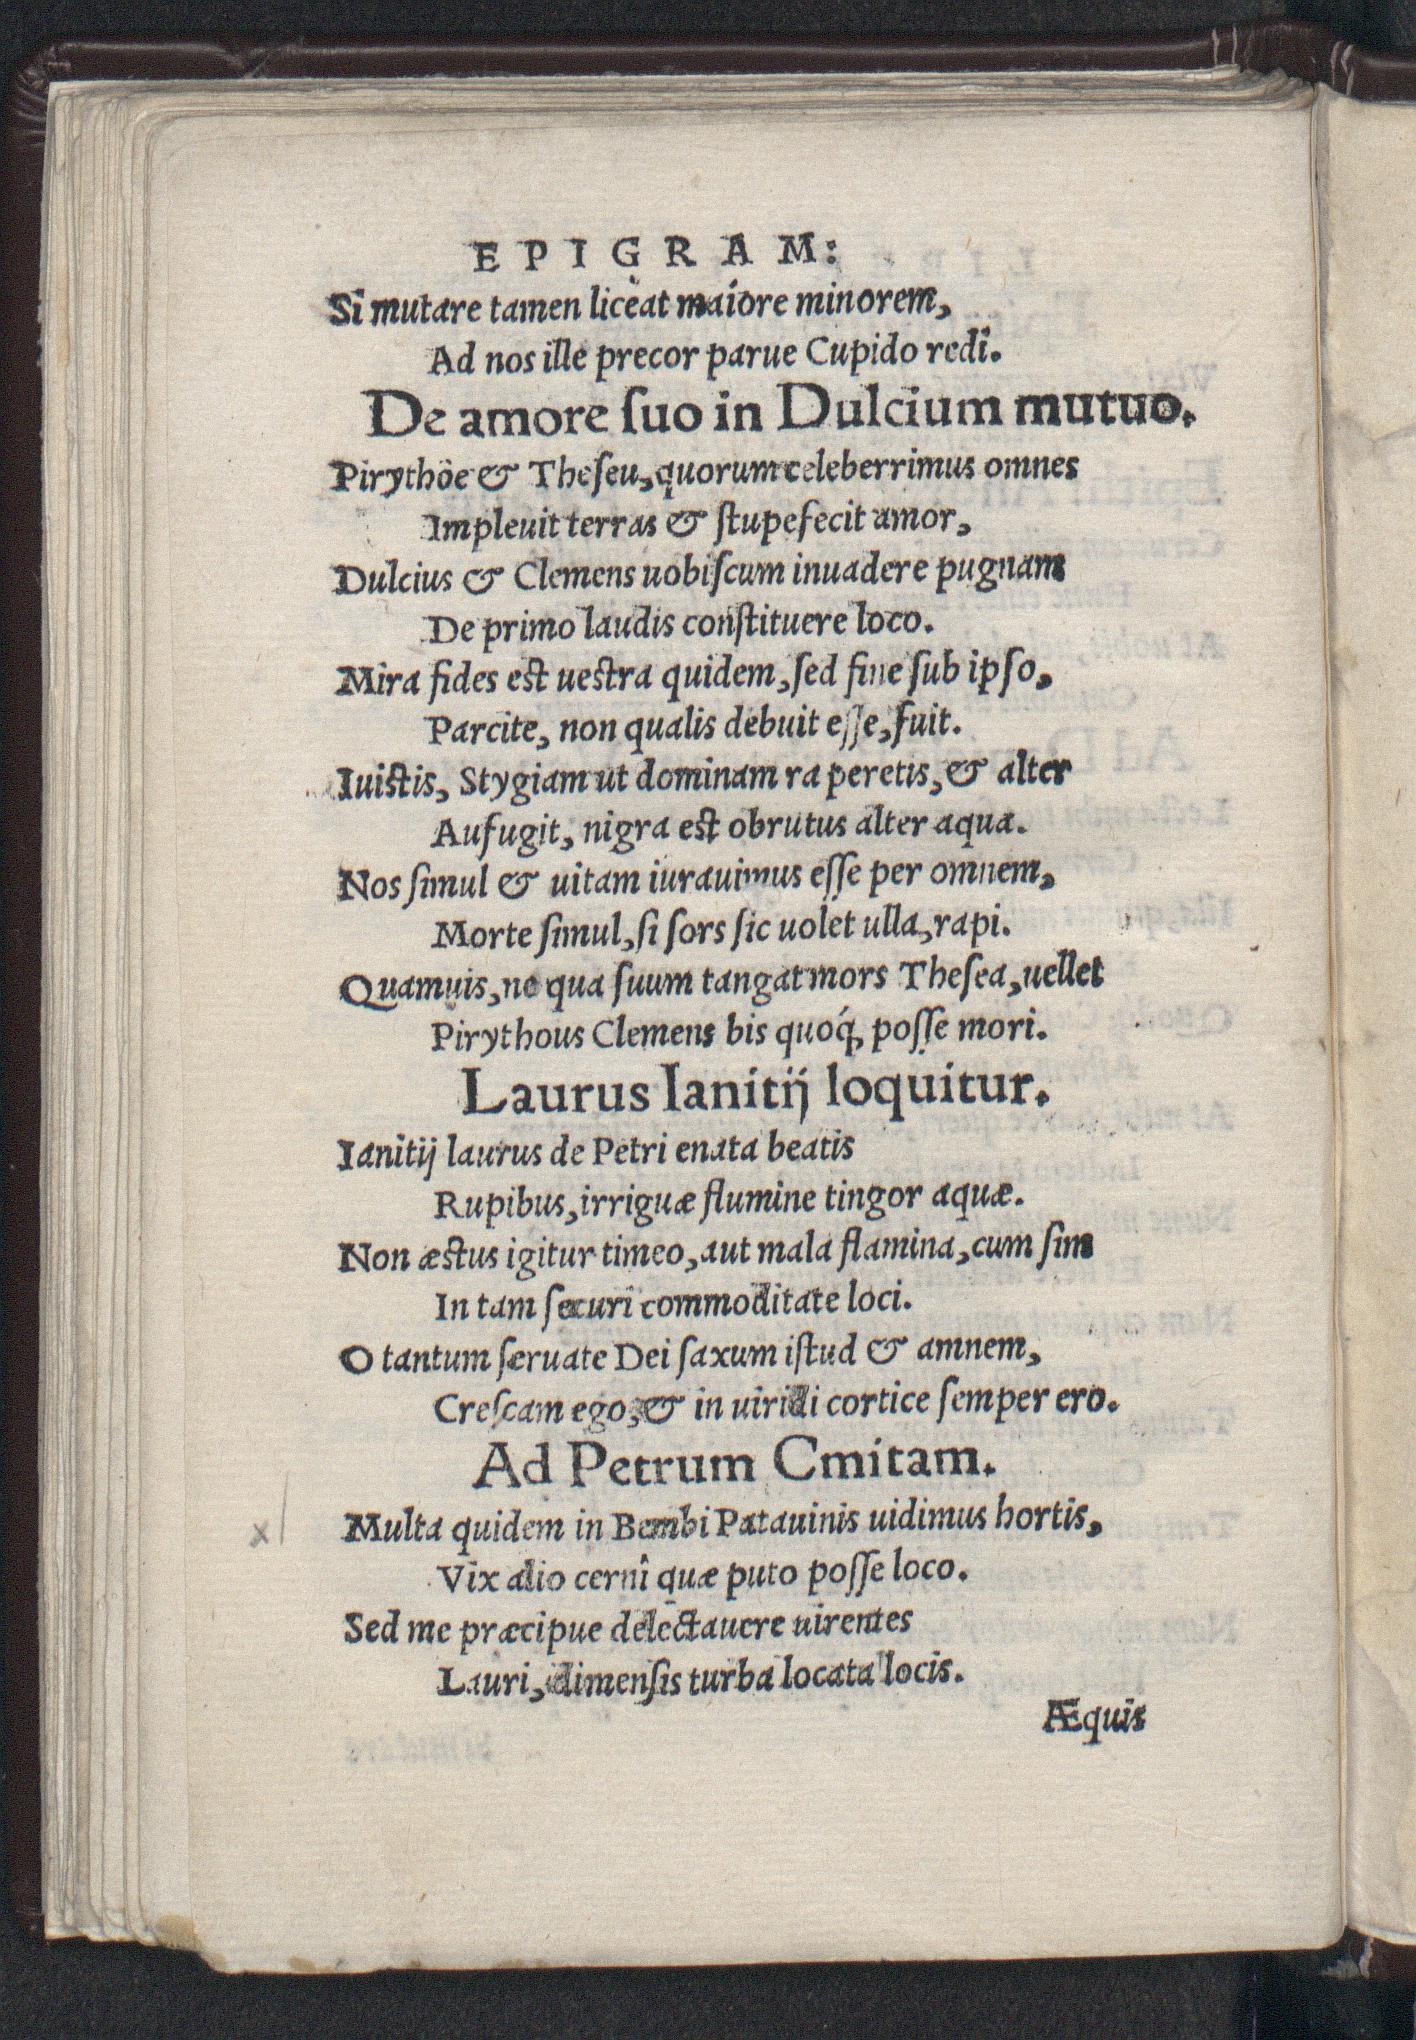 EPIGRAM:
Si mutare tamen liceat maíore minorem,
Ad nos ille precor parue Cupido redi.
De amore ſuo in Dulcium mutuo.
Pirythöe & Theſeu, quorum celeberrimus omnes
Impleuit terras & ſtupefecit amor,
Dulcius & Clemens uobiſcum inuadere pugnam
De primo laudis conſtituere loco.
Mira fides est uestra quidem, ſed fine ſub ipſo,
Parcite, non qualis debuit eſſe, fuit.
Iuistis, Stygiam ut dominam raperetis, & alter
Aufugit, nigra est obrutus alter aqua.
Nos ſimul & uitam iurauimus eſſe per omnem,
Morte ſimul, ſi ſors ſic uolet ulla, rapi.
Quamuis, ne qua ſuum tangat mors Theſea, uellet
Pirythous Clemens bis quoq́; poſſe mori.
Laurus Ianitij loquitur.
Ianitij laurus de Petri enata beatis
Rupibus, irriguæ flumine tingor aquæ.
Non æstus igitur timeo, aut mala flamina, cum ſim
In tam ſecuri commoditate loci.
O tantum ſeruate Dei ſaxum iſtud & amnem,
Creſcam ego, & in uiridi cortice ſemper ero.
Ad Petrum Cmitam.
Multa quidem in Bembi Patauinis uidimus hortis,
Vix alio cerni quæ puto poſſe loco.
Sed me præcipue delectauere uirentes
Lauri, dimenſis turba locata locis.
Æquis